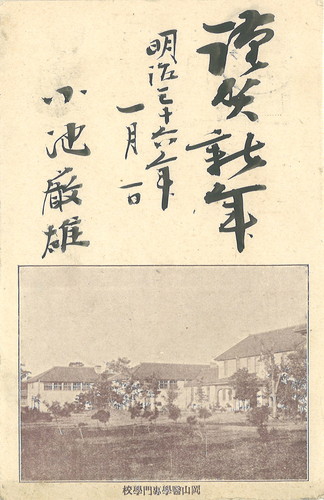 謹賀新年
明治三十六年
一月一日
小池厳雄
岡山醫學專門學校